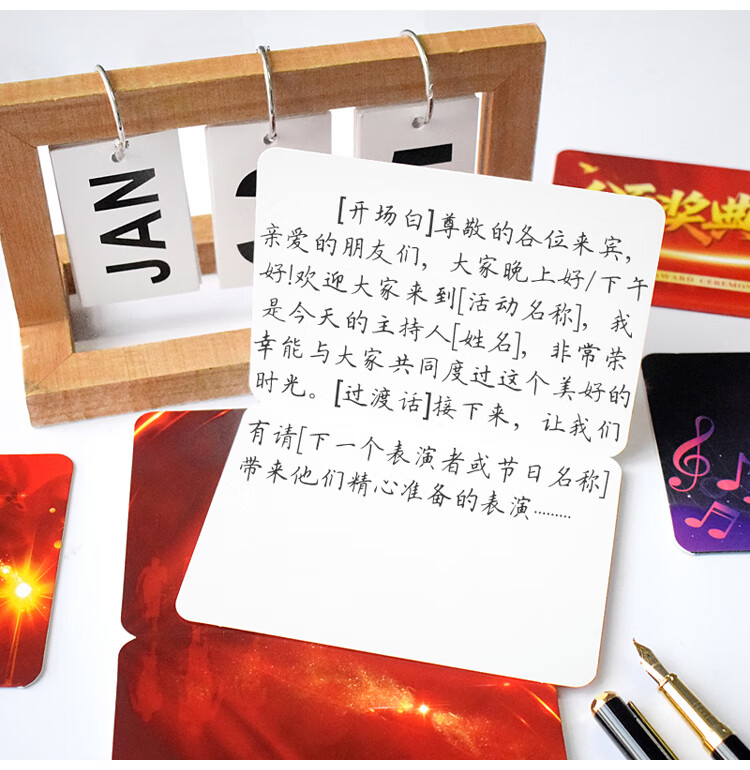 JAN
[开场白]尊敬的各位来宾,
亲爱的朋友们, 大家晚上好/下午
好!欢迎大家来到[活动名称], 我
是今天的主持人[姓名], 非常荣
幸能与大家共同度过这个美好的
时光。[过渡话]接下来, 让我们
有请[下一个表演者或节目名称]
带来他们精心准备的表演………
颁奖典
AWARD CEREMON